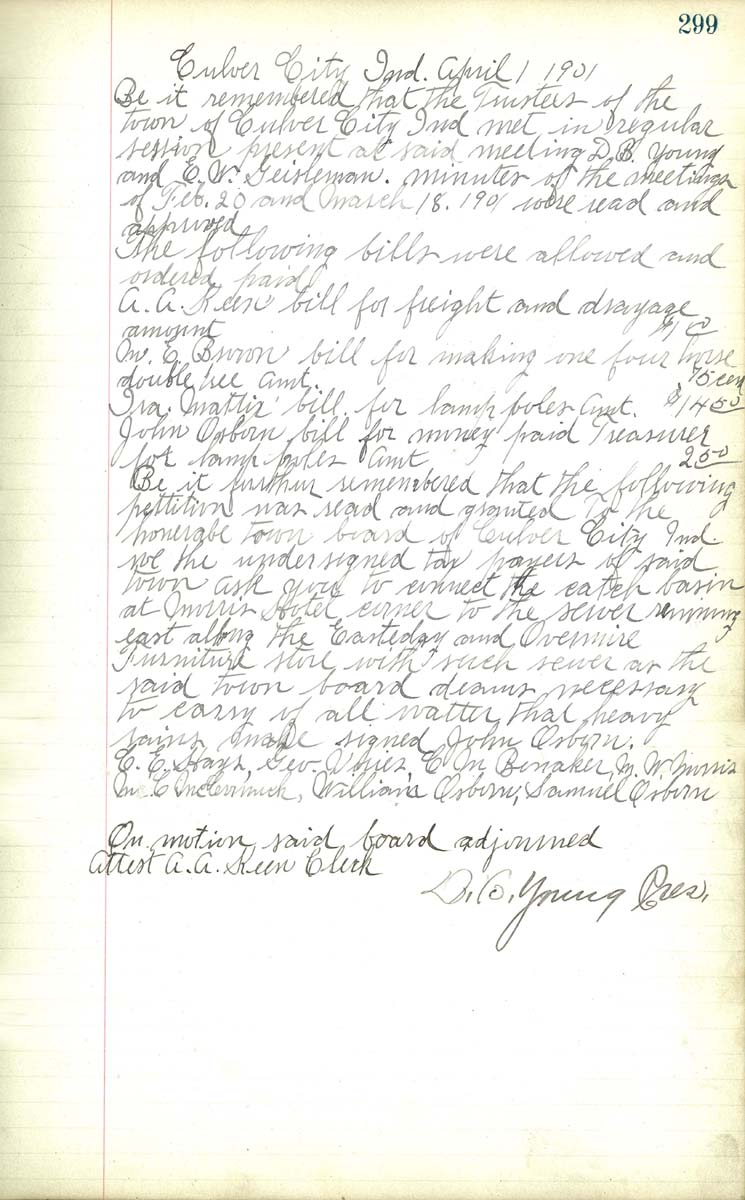 299
Culver City Ind. April 1 1901
Be it remembered that the Trustees of the
town of Culver City Ind met in regular
session present at said meeting D.B. Young
and E.W. Geisleman. minutes of the meetings
of Feb. 20 and March 18. 1901 were read and
approved
The following bills were allowed and
ordered paid
A.A. Keen bill for freight and drayage
amount $1
M.E. Brown bill for making one four horse
double tree amt. .75 cen
Ira Mattix bill for lamp poles amt. $14 50
John Osborn bill for money paid Treasurer
for lamp poles Amt 2 50
Be it further remembered that the following
petition was read and granted To the
honerabe town board of Culver City Ind.
we the undersigned tax payers of said
town ask you to connect the catch basin
at Morris Hotel corner to the sewer running
east along the Easteday and Overmire
Furniture store with such sewer as the
said town board deams necessary
to carry of all watter that heavy
rains make signed John Osborn.
E.E. Hays, Geo. Vories, E M Bonaker, M. W. Morris
Mc.C McCormick, William Osborn, Samuel Osborn
On motion said board adjourned
Attest A.A. Keen Clerk
D.B. Young Pres.